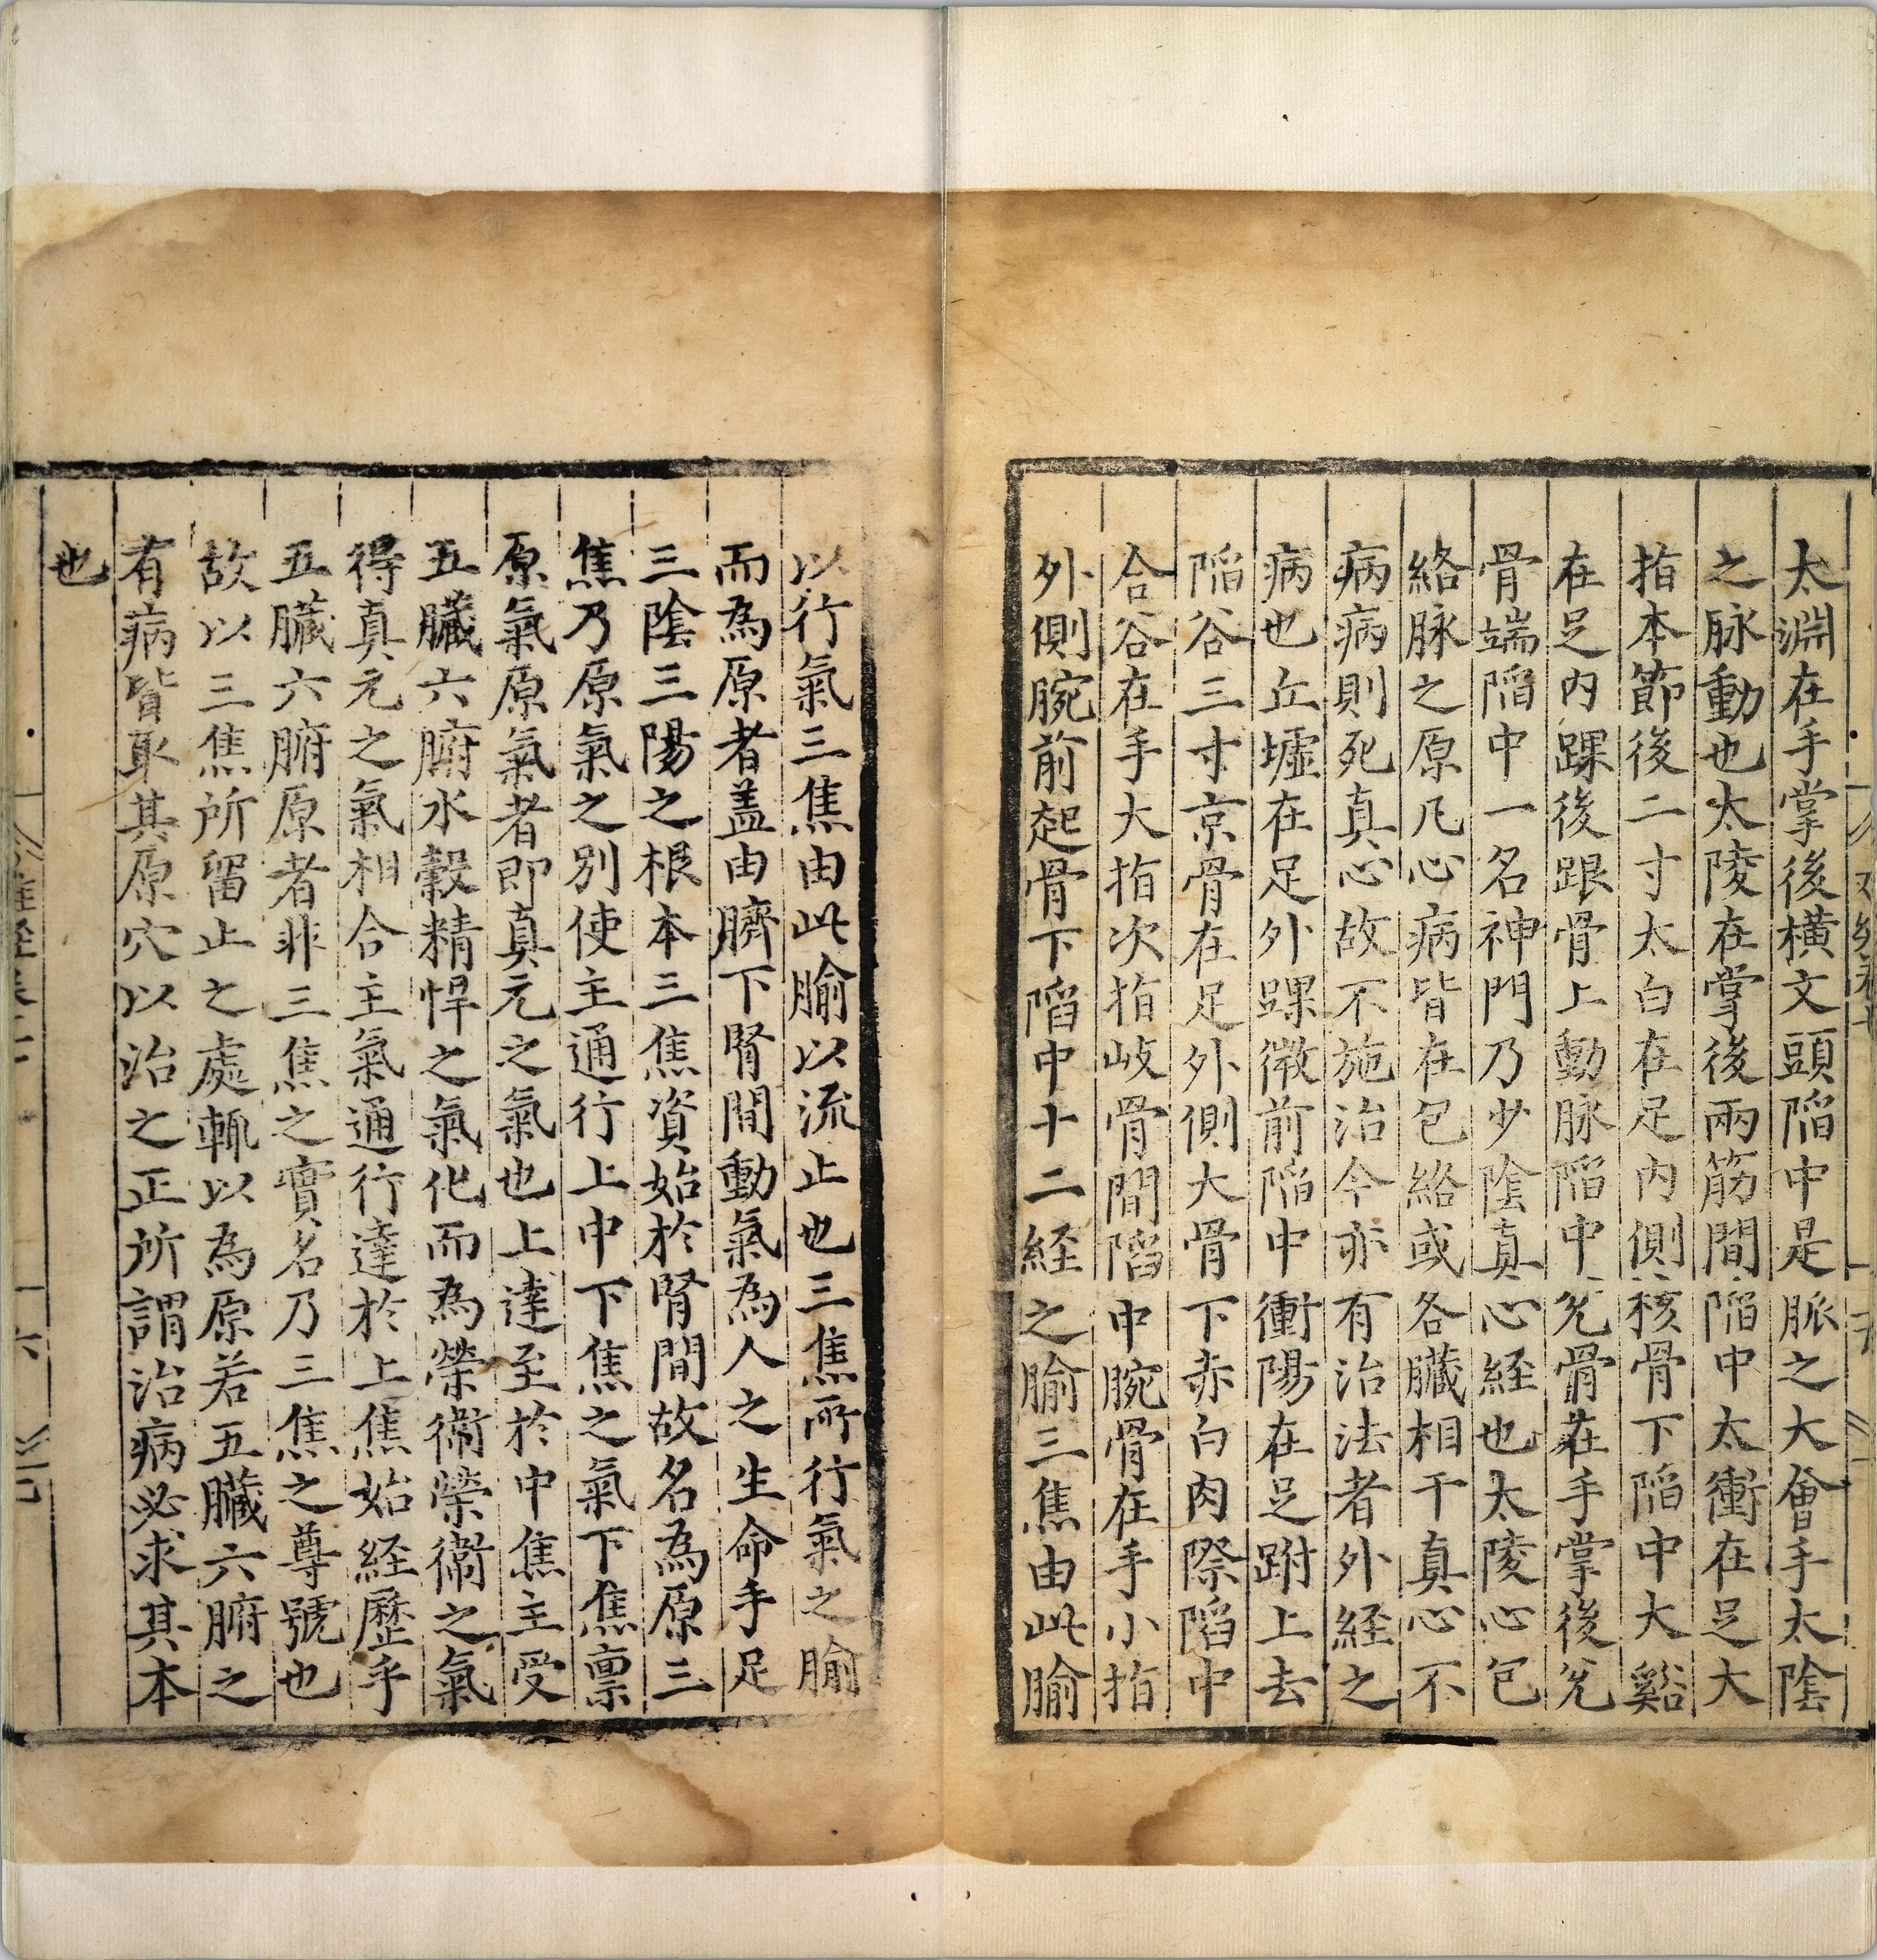 太淵在手掌後橫文頭陷中是脈之大會手太陰
之脉動也太陵在掌後兩筋間陷中太衝在足大
指本節後二寸太白在足内側核骨下陷中大谿
在足内踝後跟骨上動脉陷中兊骨在手掌後兊
骨端陷中一名神門乃少陰真心経也太陵心包
絡脉之原凡心病皆在包絡或各臟相干真心不
病病則死真心故不施治今亦有治法者外経之
病也丘墟在足外踝微前陷中衝陽在足跗上去
陷谷三寸京骨在足外側大骨下赤白肉際陷中
合谷在手大指次指岐骨間陷中腕骨在手小指
外側腕前起骨下陷中十二経之腧三焦由此腧
以行氣三焦由此腧以流止也三焦所行氣之腧
而為原者盖由臍下腎間動氣為人之生命手足
三陰三陽之根本三焦資始於腎間故名為原三
焦乃原氣之別使主通行上中下焦之氣下焦禀
原氣原氣者即真元之氣也上達至於中焦主受
五臟六腑水穀精悍之氣化而為榮衛榮衛之氣
得真元之氣相合主氣通行達於上焦始経歷乎
五臟六腑原者非三焦之實名乃三焦之尊號也
故以三焦所留止之處輒以為原若五臟六腑之
有病皆取其原穴以治之正所謂治病必求其本
也
六